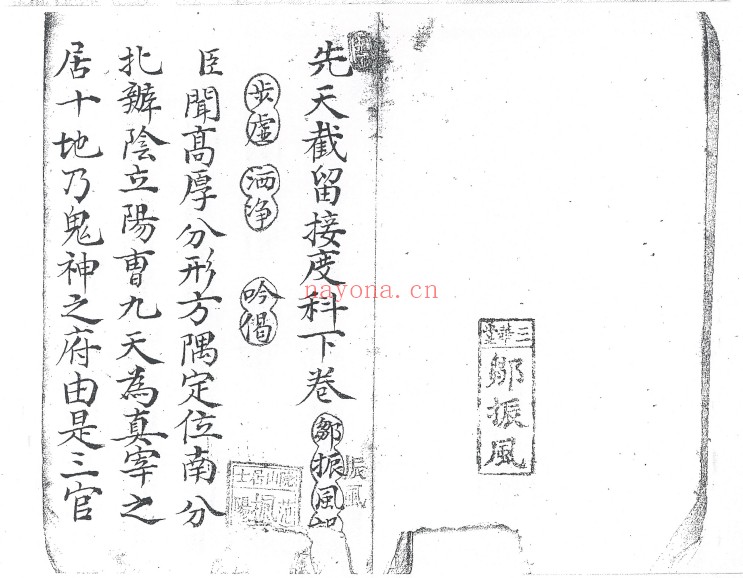 三華堂
鄒振風
先天截留接度科下卷 鄒振風
步虛 洒净 吟偈
臣聞髙厚分形方隅定位南分
北辧陰立陽曺九天為真宰之
居十地乃鬼神之府由是三官
振風
nayona.cn